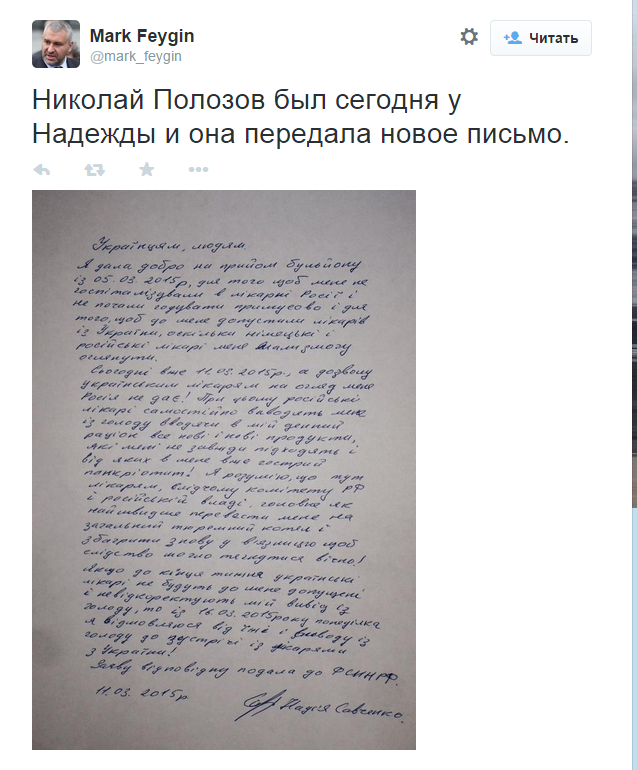 Mark Feygin
@mark_feygin
Читать
Николай Полозов был сегодня у
Надежды и она передала новое письмо.
Українцям, людям.
Я дала добро на прийом бульйону
із 05.03.2015р, для того щоб мене не
госпіталізували в лікарні Росії і
не почали годувати примусово і для
того, щоб до мене допустили лікарів
із України, оскільки німецькі і
російські лікарі мене мали змогу
оглянути.
Сьогодні вже 11.03.2015р, а дозволу
українським лікарям на огляд мене
Росія не дає! При цьому російські
лікарі самостійно виводять мене
із голоду вводячи в мій денний
раціон все нові і нові продукти,
які мені не завжди підходять і
від яких в мене вже гострий
панкріотит! Я розумію, що тут
лікарям, слідчому комітету РФ
і російській владі, головне як
найшвидше перевести мене на
загальний тюремний котел і
збагрити знову у вязницю щоб
слідство могло тягнутися вічно!
Якщо до кінця тижня українські
лікарі не будуть до мене допущені
і невідкоректують мій вивід із
голоду, то із 16.03.2015року понеділка
я відмовляюся від їжі і виводу із
голоду до зустрічі із лікарями
з України!
Заяву відповідну подала до ФСИН РФ.
11.03.2015р. Надія Савченко.